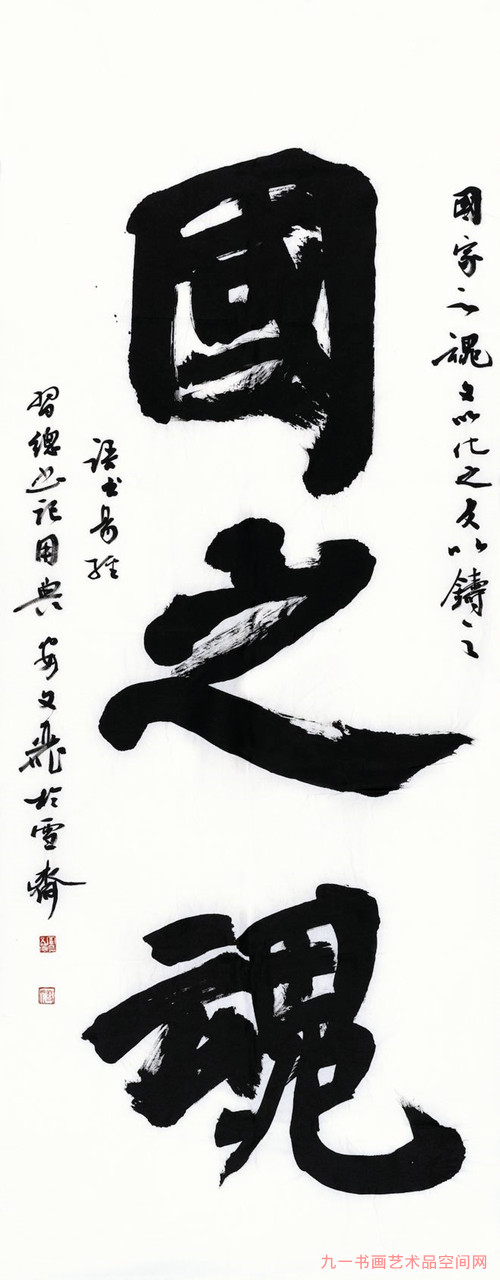 國家之魂文以化之文以鑄之
國之魂
語出易經
習總书記用典安文飛於雪齋
九一书画艺术品空间网